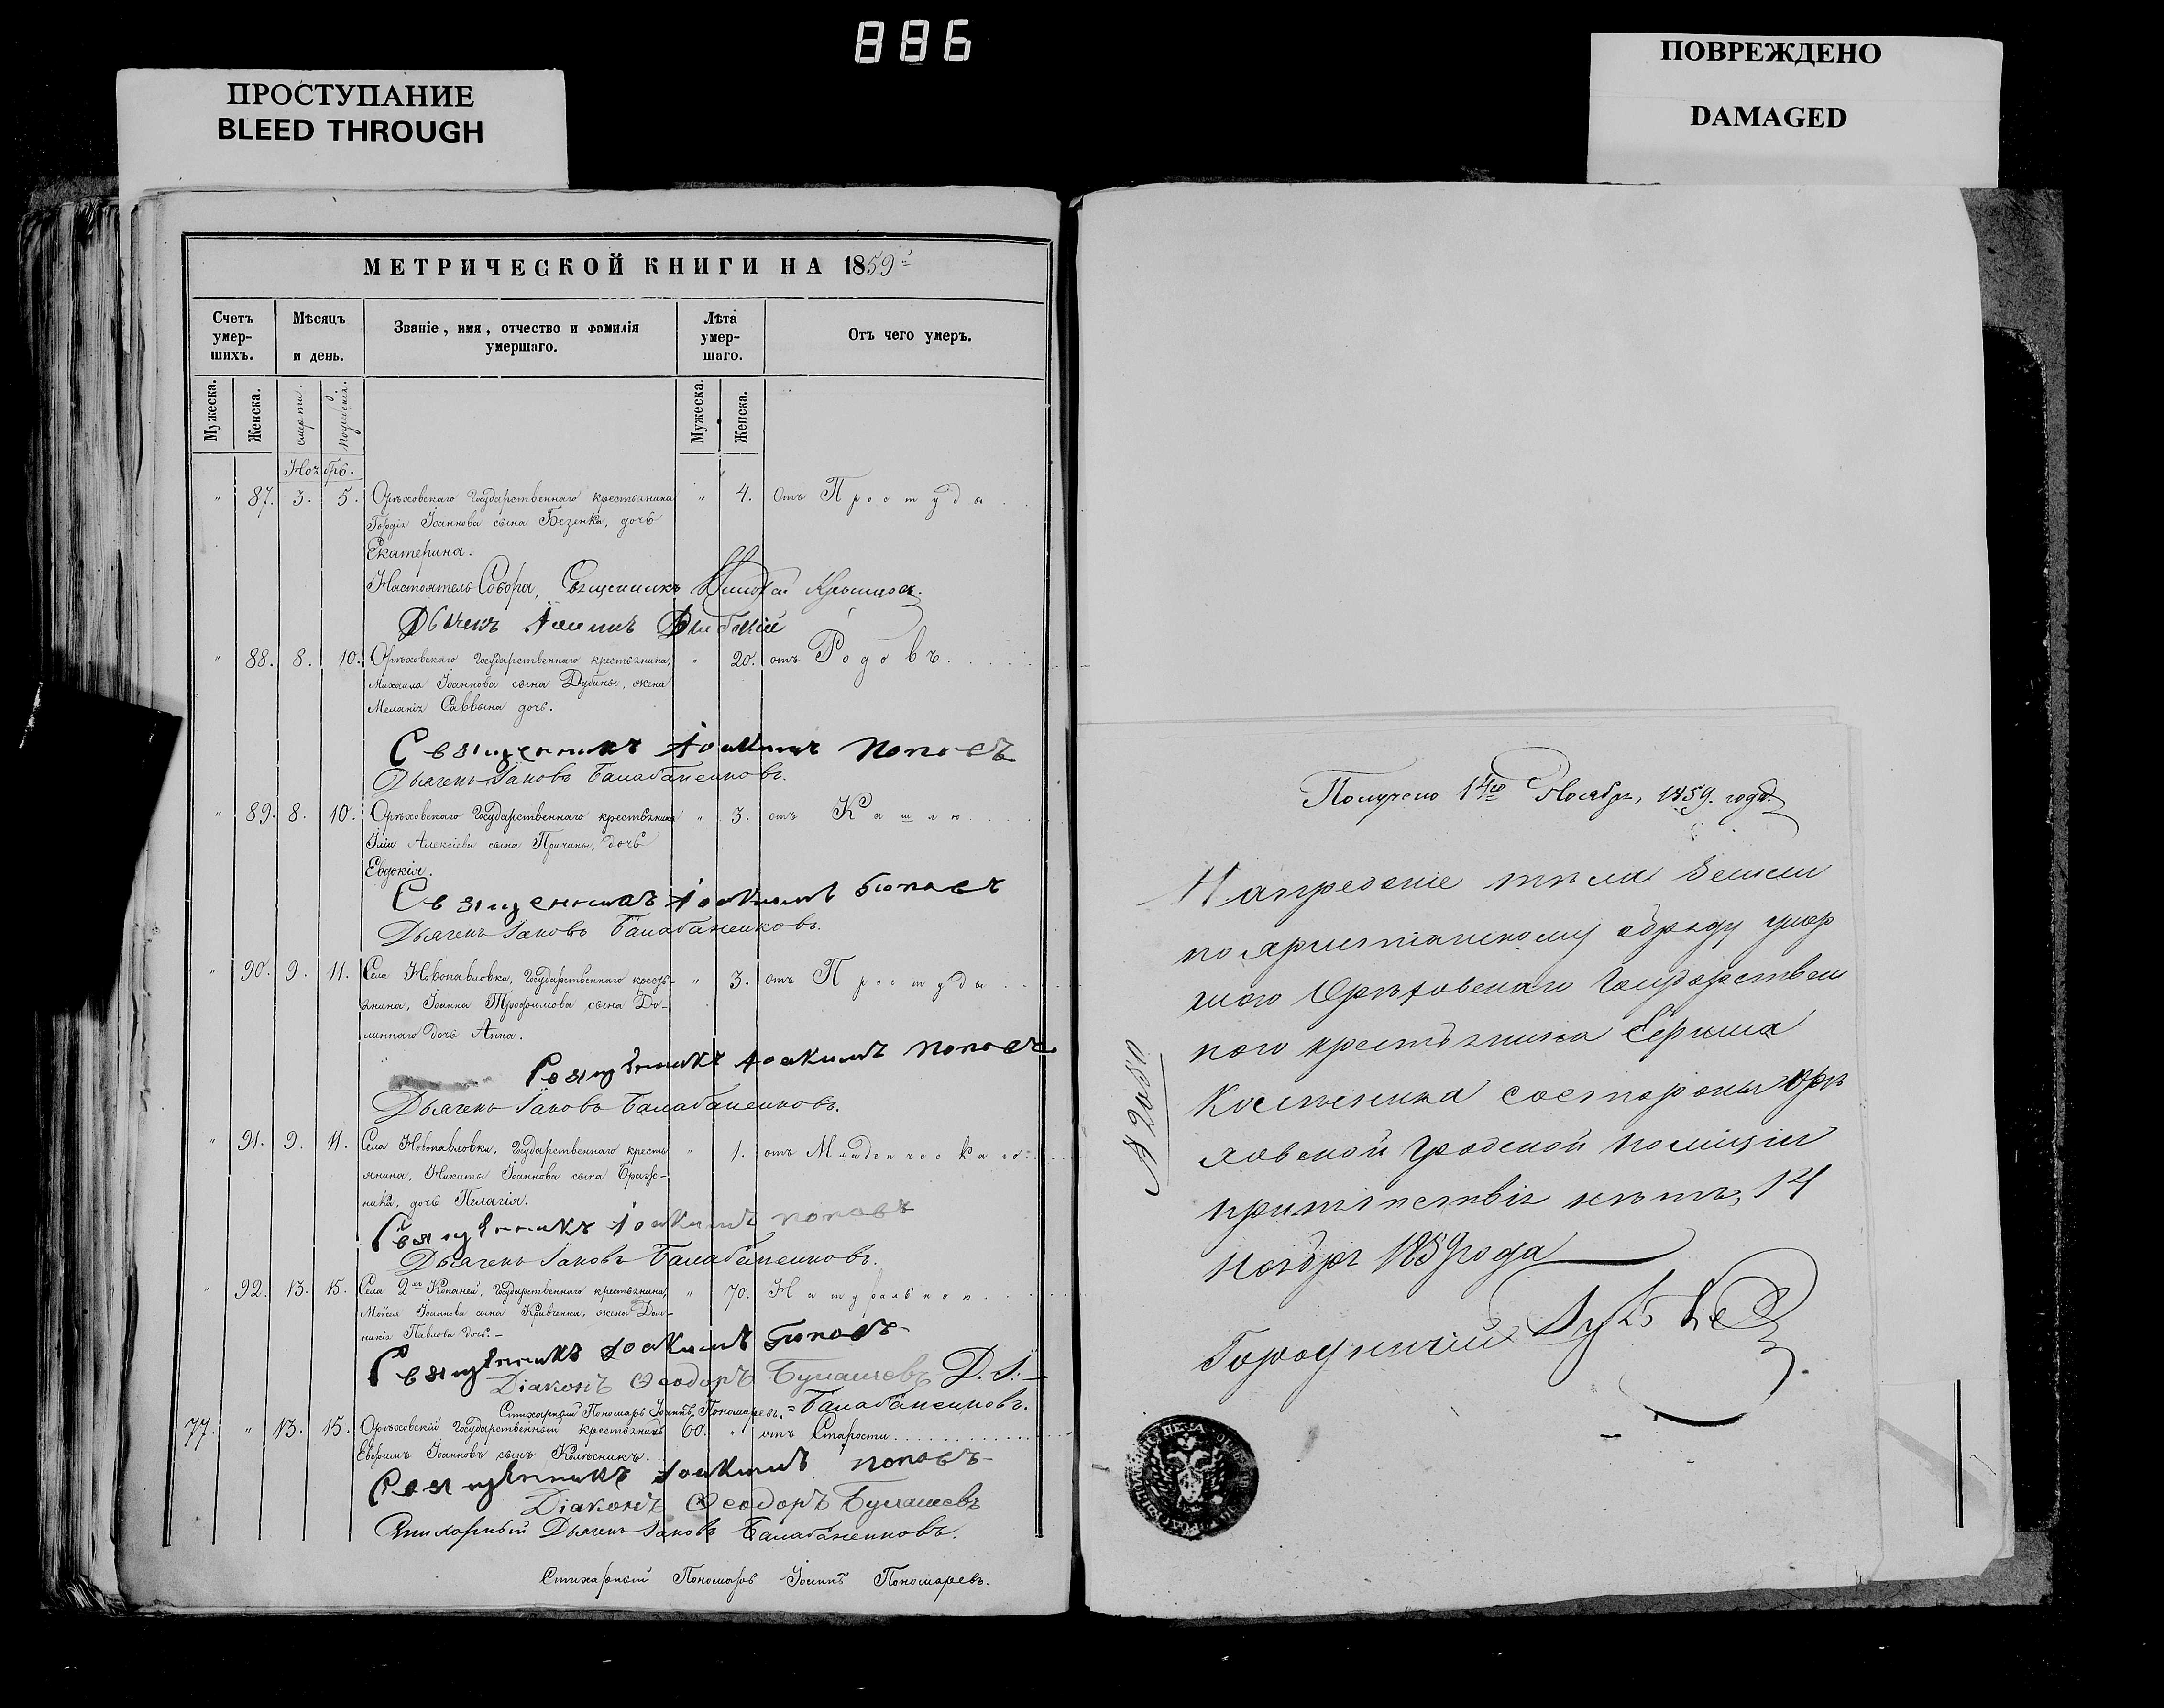 886
ПРОСТУПАНИЕ
BLEED THROUGH
ПОВРЕЖДЕНО
DAMAGED
МЕТРИЧЕСКОЙ КНИГИ НА 1859
Счетъ умер-шихъ.
Мѣсяцъ и день.
Званіе, имя, отчество и фамилія умершаго.
Лѣта умер-шаго.
Отъ чего умеръ.
Мужеска.
Женска.
смерти.
погребенія.
Мужеска.
Женска.
Ноябрь.
" 87. 3. 5. Орѣховскаго Государственнаго крестьянина " 4. отъ Простуды
Гордія Іоаннова сына Безенка, дочь
Екатерина.
Настоятель Собора, Священникъ
Дьячекъ
" 88. 8. 10. Орѣховскаго Государственнаго крестьянина, " 20. отъ Родовъ.
Михаила Іоаннова сына Дубины, жена
Меланія Саввына дочь.
Священникъ Іоакимъ Поповъ
Дьячекъ Іаковъ Балабаненковъ.
" 89. 8. 10. Орѣховскаго Государственнаго крестьянина " 3. отъ Кашлю
Іліи Алексіева сына Причины, дочь
Евдокія.
Священникъ Іоакимъ Поповъ
Дьячекъ Іаковъ Балабаненковъ.
" 90. 9. 11. Села Новопавловки, Государственнаго кресть- " 3. отъ Простуды
янина, Іоанна Трофимова сына До-
линнаго дочь Анна.
Священникъ Іоакимъ Поповъ
Дьячекъ Іаковъ Балабаненковъ.
" 91. 9. 11. Села Новопавловки, Государственнаго кресть " 1. отъ Младенческаго
янина, Никиты Іоаннова сына Браж-
ника, дочь Пелагія.
Священникъ Іоакимъ Поповъ
Дьячекъ Іаковъ Балабаненковъ.
" 92. 13. 15. Села 2й Копаней, Государственнаго крестьянина, " 70. Натуральною
Моѵсея Іоаннова сына Кравченка, жена Дом-
никія Павлова дочь.
Священникъ Іоакимъ Поповъ
Діаконъ Ѳеодоръ Булашевъ Д. І.
Стихарный Пономарь Іоаннъ Пономаревъ. Балабаненковъ.
77. " 13. 15. Орѣховскій Государственный крестьянинъ 60. " отъ Старости
Ефримъ Іоанновъ сынъ Колѣсникъ.
Священникъ Іоакимъ Поповъ
Діаконъ Ѳеодоръ Булашевъ
Стихарный Дьячекъ Іаковъ Балабаненковъ.
Стихарный Пономарь Іоаннъ Пономаревъ.
Получено 14го Ноября, 1859. года.
На преданіе тѣла земли
по христіанскому обряду умер
шаго Орѣховскаго Государствен
наго крестьянина
со стороны Орѣ
ховской Градской полиціи
припятствія нѣтъ, 14
ноября 1859 года
Городничій
№ 2080